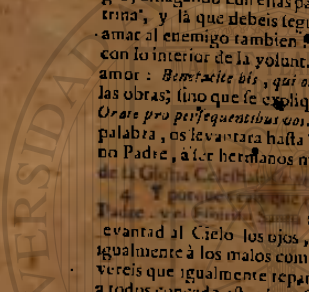 trina", y la que debeis segu
amar al enemigo tambien
con lo interior de la volunt
amor : Benefacite his , qui o
las obras; sino que se expliq
Orate pro persequentibus vos.
palabra , os levantara hasta
no Padre , à ser hermanos
de la Gloria Celestial
4. Y porque veais que
Padre , y el Espiritu Santo
evantad al Cielo los ojos ,
igualmente à los malos com
vereis que igualmente repar
a todos